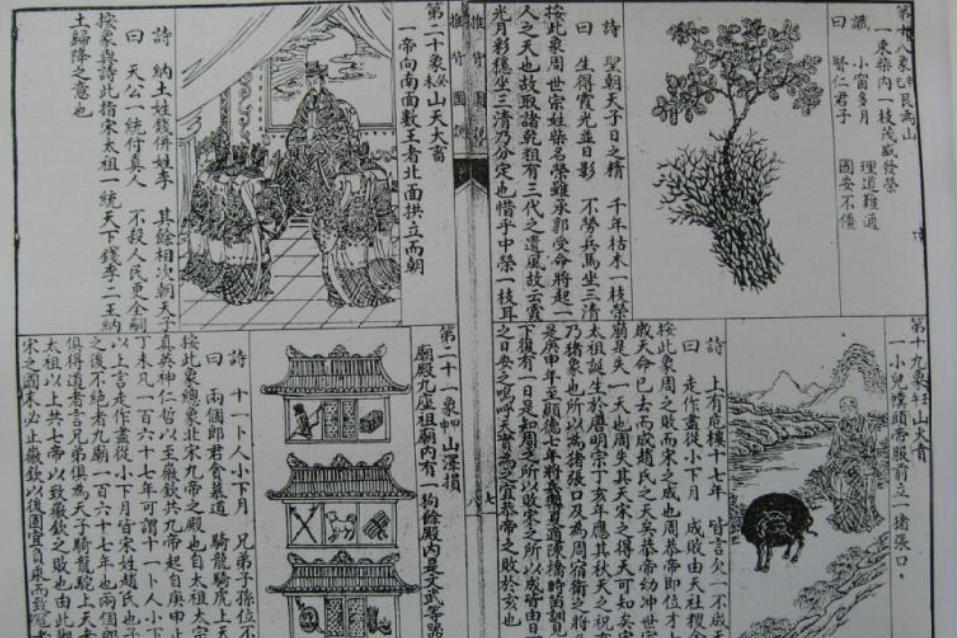 第十八象辛巳艮為山
一束柴內一枝茂盛發榮
讖 小窗多月 理道難通
曰 賢仁君子 國安不僣
詩 聖朝天子日之精 千年枯木一枝榮
曰 生得霞光並日影 不勞兵馬坐三清
按此象周世宗姓柴名榮雖承郭受命將起一
人之天也故取諸乾祖有三代之遺風故云雲
光月影穩坐三清乃分定也惜乎中榮一枝耳
第十九象壬午山火賁
一小兒幞頭帝服前立一猪張口
詩 上有危樓十七年 皆言欠一不成天
曰 走作盡從小下月 成敗由天社
按此象周之敗而宋之成也周恭帝即位才
歲天命已去而成趙氏之天矣恭帝幼冲世宗
廟是失一天也周失其天宋之得天可知矣宋
太祖誕生於唐明宗丁亥年應其秋天之祝
乃猪象也所以為猪張口及為周宿衛之將
是庚申年至顯德七年將 道陳橋時
下復有一日是知周之所以敗宋之所以成皆由日
之日安之嗚呼天實為之宜恭帝之敗於亥也
推背圖說
七
推背圖說
第二十象癸未山天大畜
一帝向南面數王者北面拱立而朝
詩 納土姓錢併姓李 其餘相次朝天子
曰 天公一統付真人 不殺人民更全嗣
按象與詩此指宋太祖一統天下錢李二王納
土歸降之意也
第二十一象甲申山澤損
廟殿九座祖廟內有一狗餘殿內是文武等器
詩 十一卜人小下月 兄弟子孫位不
曰 兩個郎君會慕道 騎龍騎虎上天
按此象總象北宋九帝之殿也自太祖太宗
真英神仁哲以至徽欽共九帝起自庚申止
丁未凡一百六十七年可謂十一卜人小下
以上言走作盡從小下月皆宋姓趙氏也子
之後不絶者九廟一百六十七年也兩個郎
俱得道者言兄弟俱為天子騎龍駝上天者
太祖以上共七帝以致徽欽之敗也由此
宋之國未必止徽欽以後圖宜負乘而致寇者